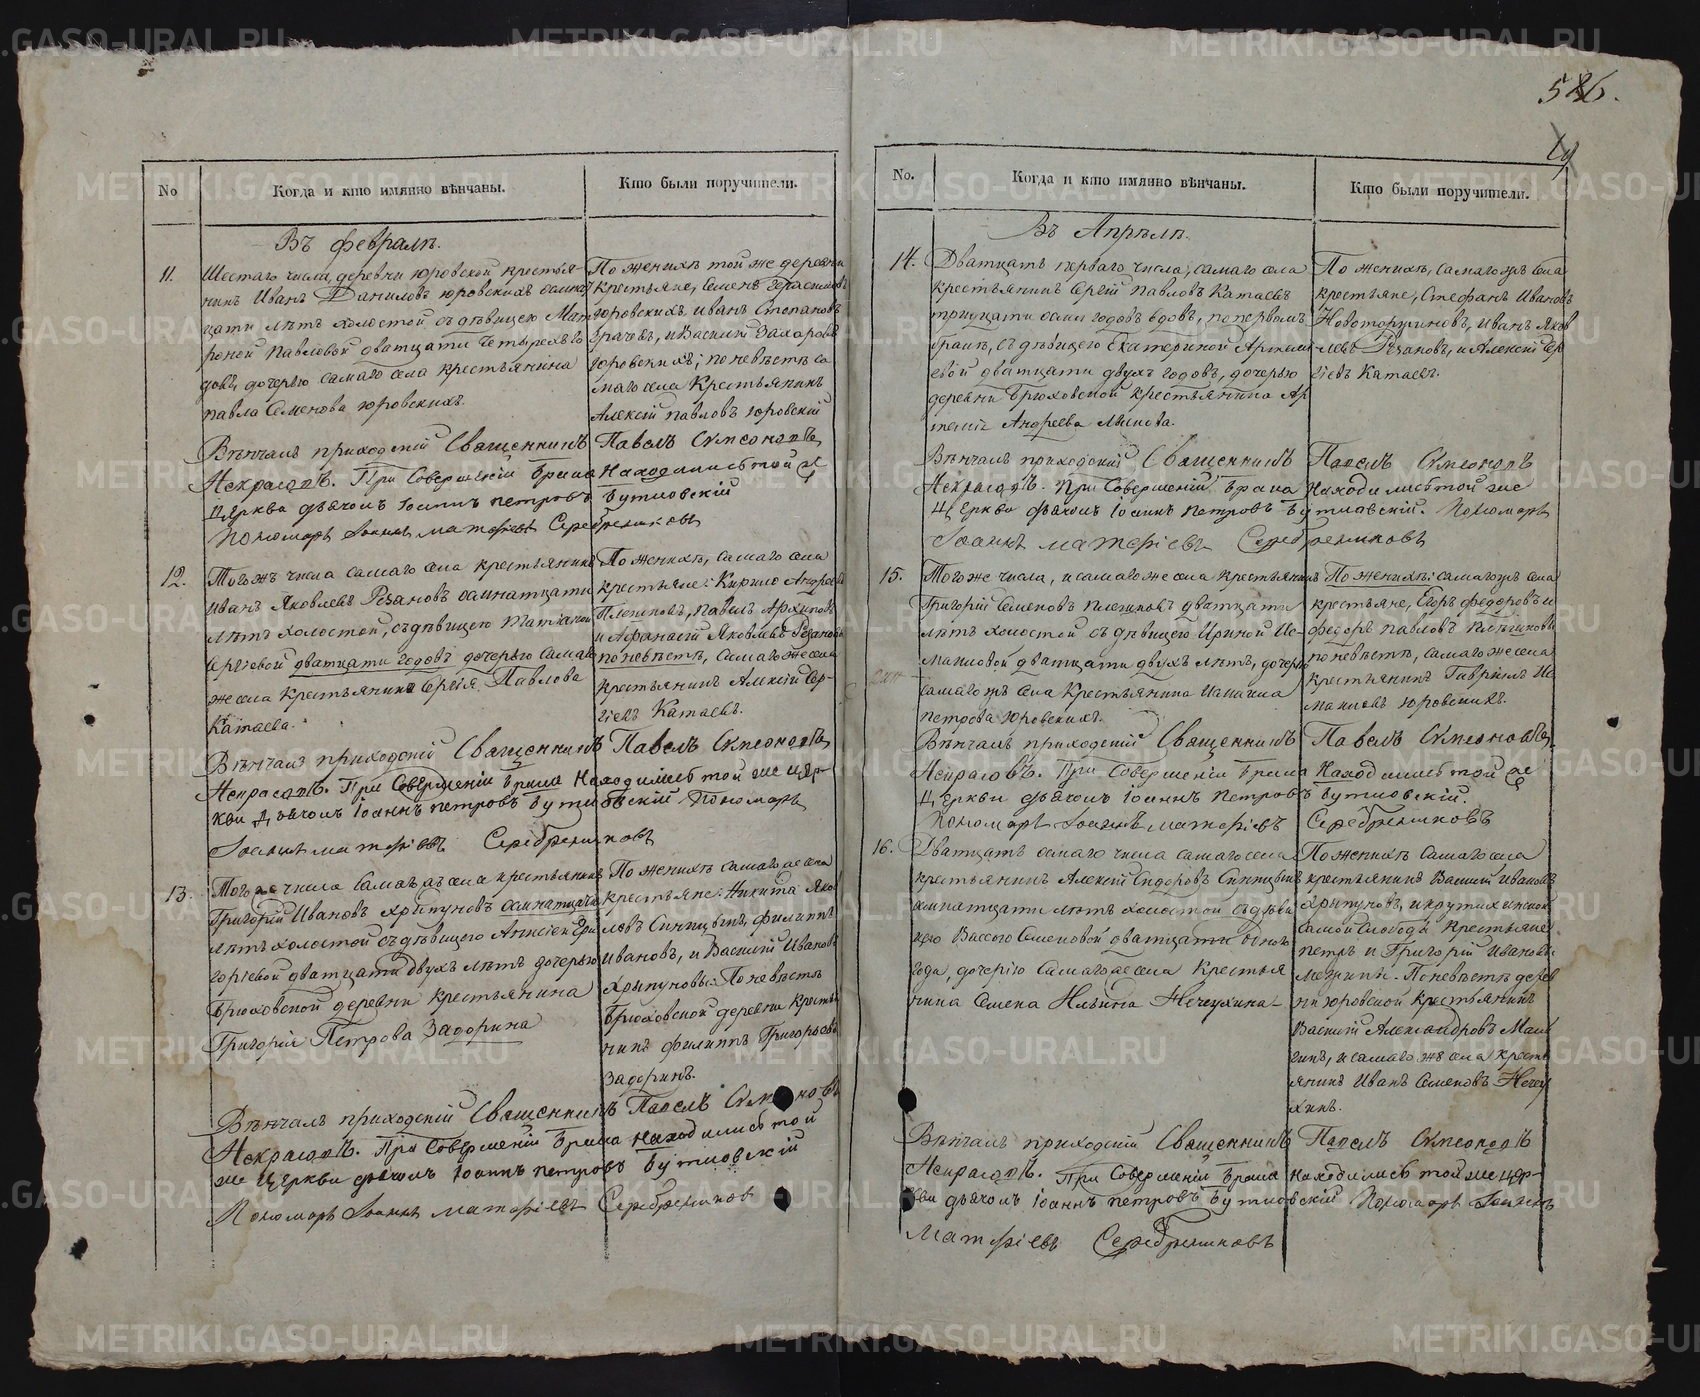 586.
19
No
Когда и кто имянно вѣнчаны.
Кто были поручители.
Въ Февралѣ.
11.
Шестаго числа, деревни Юровской крестья-
нинъ Иванъ Даниловъ Юровскихъ осмнад
цати лѣтъ холостой съ дѣвицею Мат
роной Павловой дватцати четырехъ го
довъ, дочерью самаго села крестьянина
Павла Семенова Юровскихъ.
По женихѣ той же деревни
крестьяне, Семенъ Герасимовъ
Юровскихъ, Иванъ Степановъ
Грачевъ, и Василий Захаровъ
Юровскихъ; по невѣстѣ са
маго села Крестьянинъ
Алексій Павловъ Юровскій
Вѣнчалъ приходскій Священникъ Павелъ Симеоновъ
Некрасовъ. При Совершеніи брака Находились той же
Церкви дьячокъ Іоаннъ Петровъ Бутковскій
Пономарь Іоаннъ Матѳіевъ Серебренниковъ
12.
Тогожъ числа самаго села крестьянинъ
Иванъ Яковлевъ Рѣзановъ осмнатцати
лѣтъ холостой, съ дѣвицею Татіаной
Сергіевой дватцати годовъ дочерью самаго
же села крестьянина Сергія Павлова
Катаева.
По женихѣ, самаго села
крестьяне: Кирило Андреевъ
Плешковъ, Павелъ Архиповъ
и Афанасій Яковлевъ Рѣзановъ
по невѣстѣ, Самаго же села
крестьянинъ Алексій Сер-
гіевъ Катаевъ.
Вѣнчалъ приходскій Священникъ Павелъ Симеоновъ
Некрасовъ. При Совершеніи брака Находились той же Цер-
кви Дьячокъ Іоаннъ Петровъ Бутковскій Пономарь
Іоаннъ Матѳіевъ Серебренниковъ
13.
Того же числа Самагожъ села крестьянинъ
Григорій Ивановъ Хрипуновъ осмнатцати
лѣтъ холостой съ дѣвицею Анисіей Гри
горіевой дватцати двухъ лѣтъ дочерью
Брюховской деревни крестьянина
Григорія Петрова Задорина
По женихѣ самаго же села
крестьяне: Никита Яков
левъ Синицынъ, Филиппъ
Ивановъ, и Василій Ивановъ
Хрипуновы: По невѣстѣ
Брюховской деревни Крестья
нинъ Филиппъ Григорьевъ
Задоринъ.
Вѣнчалъ приходскій Священникъ Павелъ Симеоновъ
Некрасовъ. При Совершеніи брака находились той
же Церкви дьячокъ Іоаннъ Петровъ Бутковскій
Пономарь Іоаннъ Матѳіевъ Серебренниковъ
No.
Когда и кто имянно вѣнчаны.
Кто были поручители.
Въ Апрѣлѣ.
14.
Дватцать перваго числа, самаго села
крестьянинъ Сергій Павловъ Катаевъ
тритцати осми годовъ вдовъ, по первомъ
бракѣ, съ дѣвицею Екатериной Артеми
евой дватцати двухъ годовъ, дочерью
деревни Брюховской крестьянина Ар
темія Андреева
По женихѣ, самаго жъ села
крестьяне, Стефанъ Ивановъ
Новоторжиновъ, Иванъ Яков
левъ Рѣзановъ, и Алексій Сер
гіевъ Катаевъ.
Вѣнчалъ приходскій Священникъ Павелъ Симеоновъ
Некрасовъ. При Совершеніи брака находились той же
Церкви дьячокъ Іоаннъ Петровъ Бутковскій. Пономарь
Іоаннъ Матѳіевъ Серебренниковъ
15.
Того же числа, и самаго же села крестьянинъ
Григорій Семеновъ Плешковъ дватцати
лѣтъ холостой съ дѣвицею Ириной Ис-
маиловой дватцати двухъ лѣтъ, дочерью
самаго жъ села Крестьянина Исмаила
Петрова Юровскихъ.
По женихѣ: самаго жъ села
крестьяне, Егоръ Федоровъ и
Федоръ Павловъ Плешковы
по невѣстѣ, самаго же села
крестьянинъ Гаврилъ Ис
маиловъ Юровскихъ.
Вѣнчалъ приходскій Священникъ Павелъ Симеоновъ
Некрасовъ. При Совершеніи брака Находились той же
Церкви дьячокъ Іоаннъ Петровъ Бутковскій.
Пономарь Іоаннъ Матѳіевъ Серебренниковъ
16.
Дватцать осмаго числа самаго села
крестьянинъ Алексій Сидоровъ Синицынъ
осмнатцати лѣтъ холостой съ дѣви
цею Вассою Семеновой дватцати одного
года, дочерью Самаго же села Крестья
нина Семена Ильина Нечеухина
По женихѣ Самаго села
крестьянинъ Василій Ивановъ
Хрипуновъ, и Крутихинской
самой Слободы Крестьяне
Петръ и Григорій Ивановы
По невѣстѣ дерев
ни Юровской Крестьянинъ
Василій Александровъ
и самаго же села кресть
янинъ Иванъ Семеновъ Нечеу
хинъ.
Вѣнчалъ приходскій Священникъ Павелъ Симеоновъ
Некрасовъ. При Совершеніи брака находились той же Цер-
кви дьячокъ Іоаннъ Петровъ Бутковскій Пономарь Іоаннъ
Матѳіевъ Серебренниковъ
METRIKI.GASO-URAL.RU